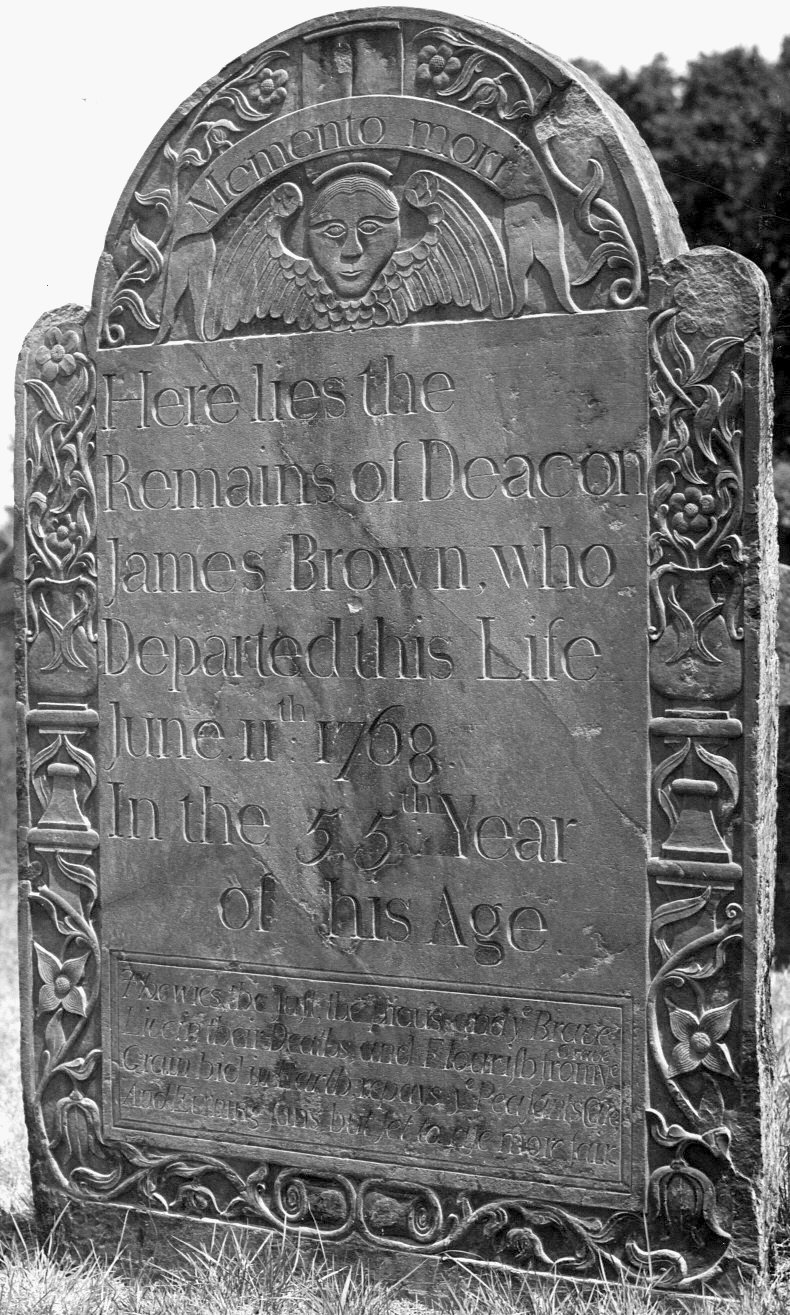 Memento mori
Here lies the
Remains of Deacon
James Brown, who
Departed this Life
June. 11th. 1768.
In the 55th Year
of his Age
the Just, the Pious and yᵉ Brave
Live in their Deaths and Flourish from yᵉ Grave
Grain hid in Earth repays yᵉ Peasants Care
And Ev'ning Suns but set to rise more fair